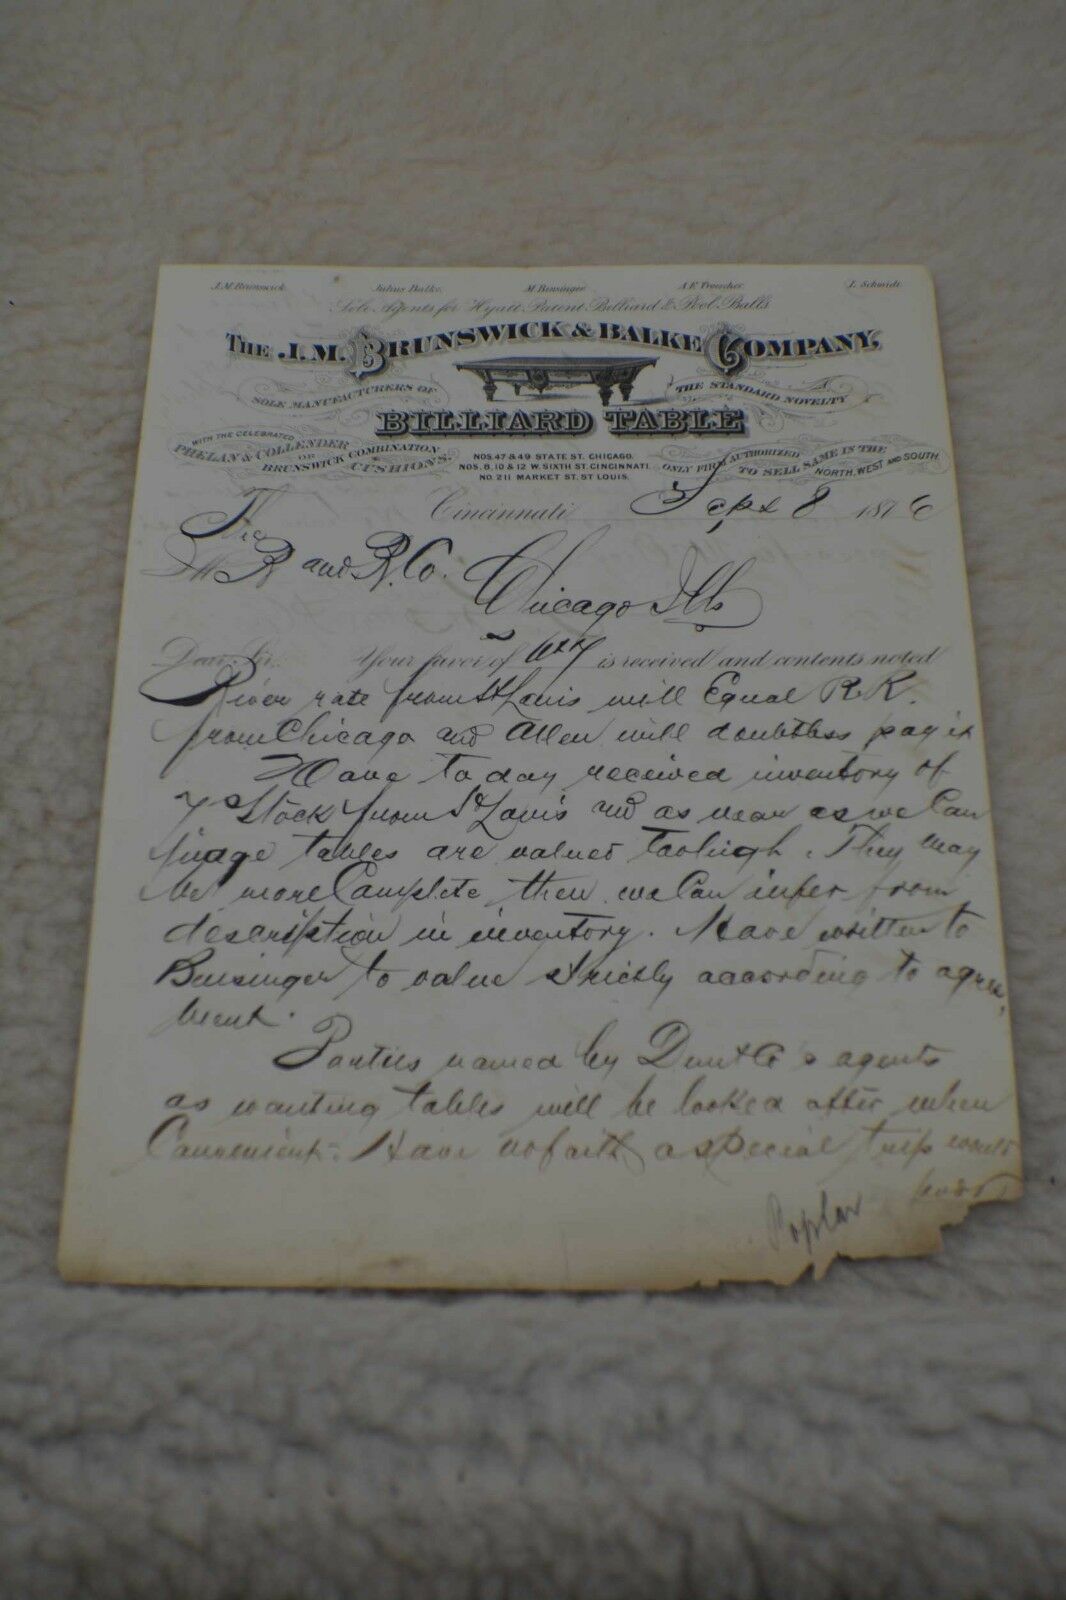 J.M. Brunswick. Julius Balke. M. Bensinger. A.F. Troescher. L. Schmidt.
Sole Agents for Hyatt Patent Billiard & Pool Balls
THE J.M. BRUNSWICK & BALKE COMPANY,
SOLE MANUFACTURERS OF THE STANDARD NOVELTY
BILLIARD TABLE
WITH THE CELEBRATED
PHELAN & COLLENDER
OR
BRUNSWICK COMBINATION
CUSHIONS.
NOS. 47 & 49 STATE ST. CHICAGO.
NOS. 8, 10 & 12 W. SIXTH ST. CINCINNATI.
NO. 211 MARKET ST. ST LOUIS.
ONLY FIRM AUTHORIZED
TO SELL SAME IN THE
NORTH, WEST AND SOUTH.
Cincinnati Sept 8 1876
The
B and B. Co.
Chicago Ills
Dear Sir: Your favor of is received and contents noted
River rate from St Louis will Equal R.R.
from Chicago and Allen will doubtless pay it
Have to day received inventory of
Stock from St Louis and as near as we Can
judge tables are valued too high. They may
be more Complete then we Can infer from
description in inventory. Have written to
Bensinger to value strictly according to agree,
ment.
Parties named by Dun & Co's agents
as wanting tables will be looked after when
Convenient. Have no faith a special trip would
Poplar